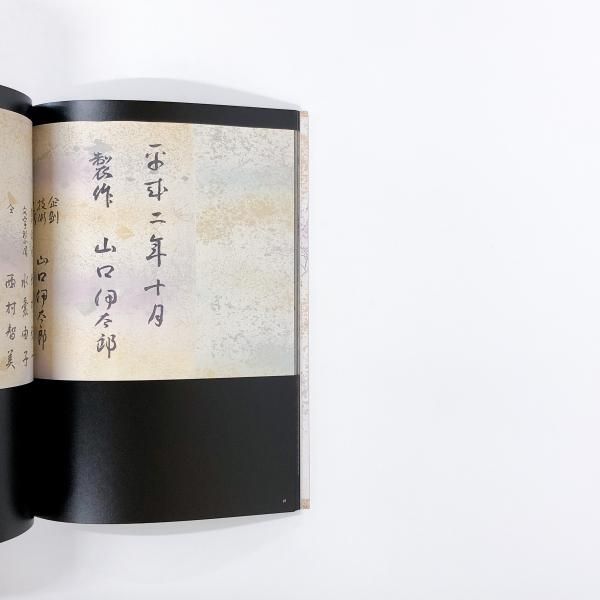 平成二年十月
製作 山口伊太郎
企劃
技術 山口伊太郎
水素由子
仝 西村智美